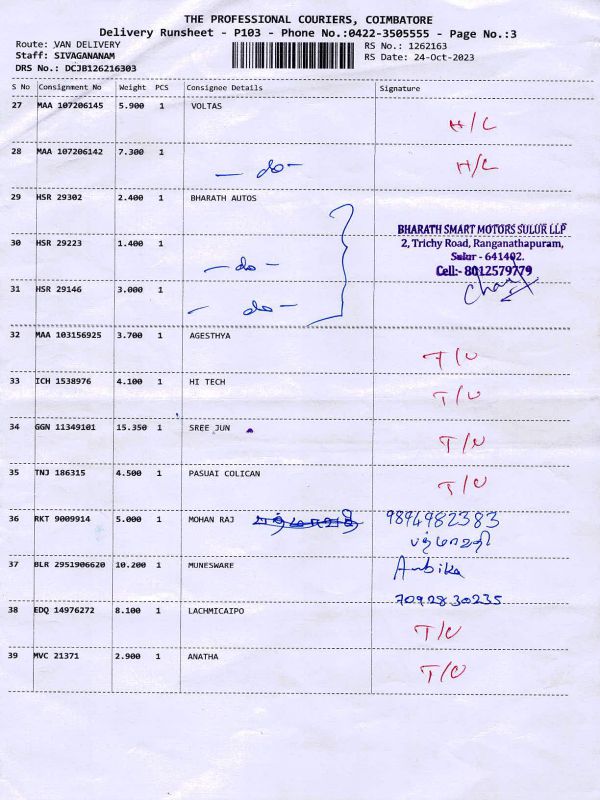 THE PROFESSIONAL COURIERS, COIMBATORE
Delivery Runsheet - P103 - Phone No.:0422-3505555 - Page No.:3
Route: VAN DELIVERY RS No.: 1262163
Staff: SIVAGANANAM RS Date: 24-Oct-2023
DRS No.: DCJB126216303
S No Consignment No Weight PCS Consignee Details Signature
27 MAA 107206145 5.900 1 VOLTAS H/C
28 MAA 107206142 7.300 1 - do - H/C
29 HSR 29302 2.400 1 BHARATH AUTOS
BHARATH SMART MOTORS SULUR LLP
2, Trichy Road, Ranganathapuram,
Sulur - 641402.
Cell:- 8012579779
30 HSR 29223 1.400 1 - do -
31 HSR 29146 3.000 1 - do -
32 MAA 103156925 3.700 1 AGESTHYA T/U
33 ICH 1538976 4.100 1 HI TECH T/U
34 GGN 11349101 15.350 1 SREE JUN T/U
35 TNJ 186315 4.500 1 PASUAI COLICAN T/U
36 RKT 9009914 5.000 1 MOHAN RAJ 9894982383
பத்மாவதி
37 BLR 2951906620 10.200 1 MUNESWARE Ambika
7092830235
38 EDQ 14976272 8.100 1 LACHMICAIPO T/U
39 MVC 21371 2.900 1 ANATHA T/U